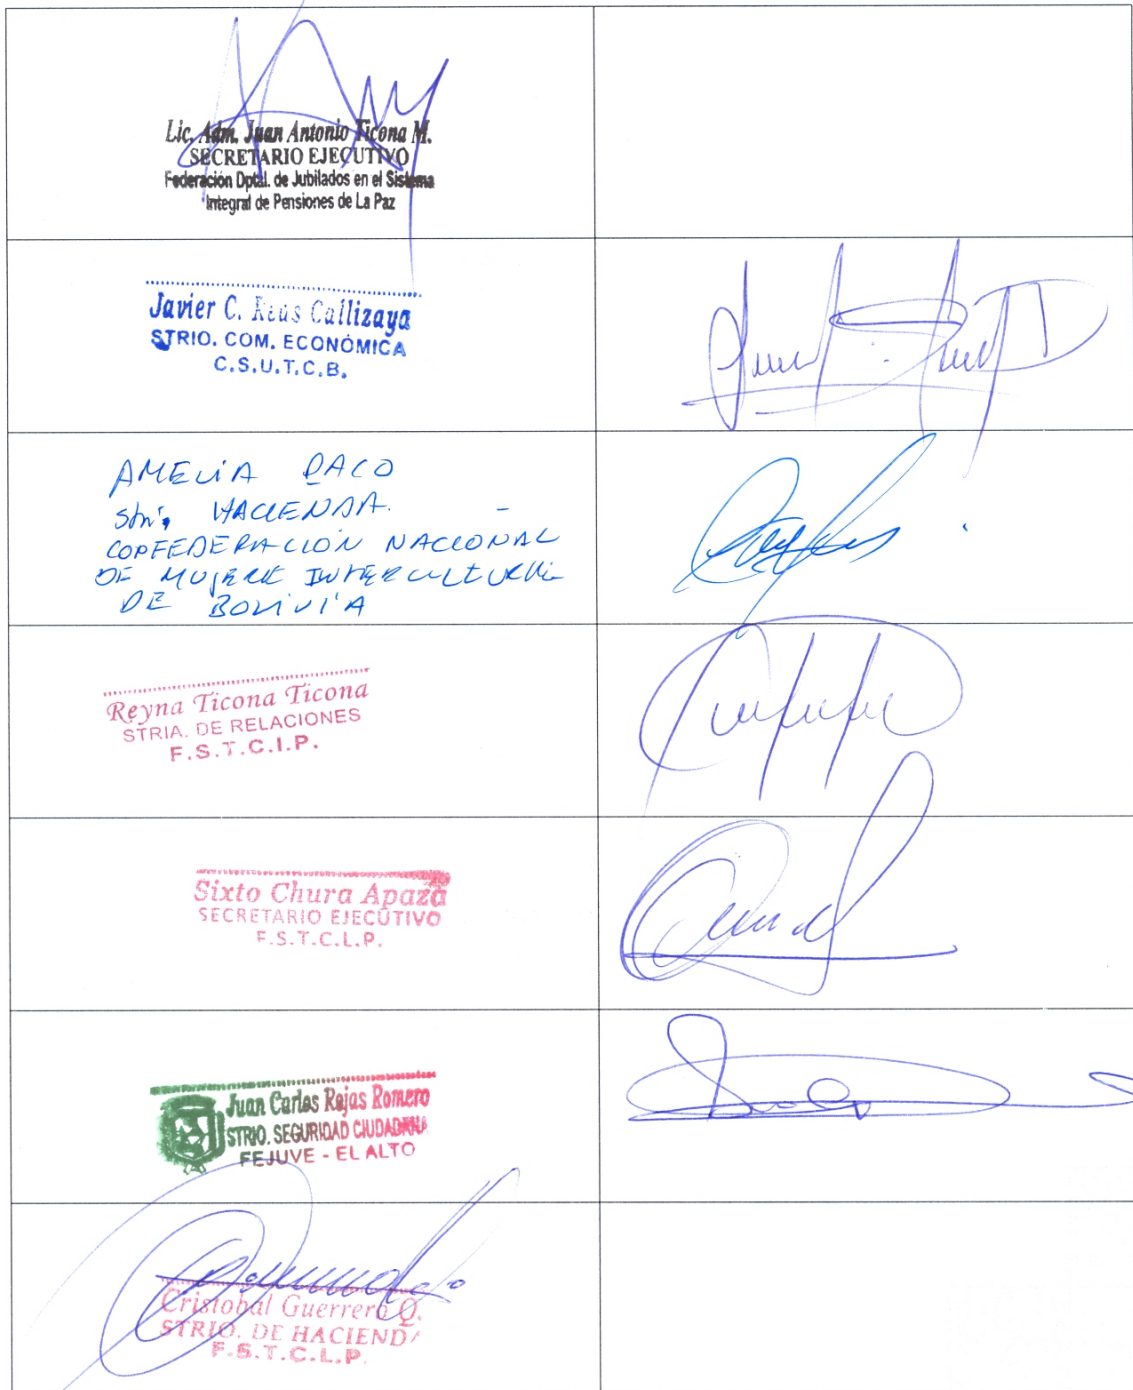 Lic. Adm. Juan Antonio Ticona M.
SECRETARIO EJECUTIVO
Federación Dptal. de Jubilados en el Sistema
Integral de Pensiones de La Paz
Javier C. Callizaya
STRIO. COM. ECONÓMICA
C.S.U.T.C.B.
AMELIA PACO
HACIENDA
COPFEDERACIÓN NACIONAL
DE MUJERE
DE BOLIVIA
Reyna Ticona Ticona
STRIA. DE RELACIONES
F.S.T.C.I.P.
Sixto Chura Apaza
SECRETARIO EJECUTIVO
F.S.T.C.L.P.
Juan Carlos Rojas Romero
STRIO. SEGURIDAD CIUDADANA
FEJUVE - EL ALTO
Cristobal Guerrero Q.
STRIO. DE HACIENDA
F.S.T.C.L.P.